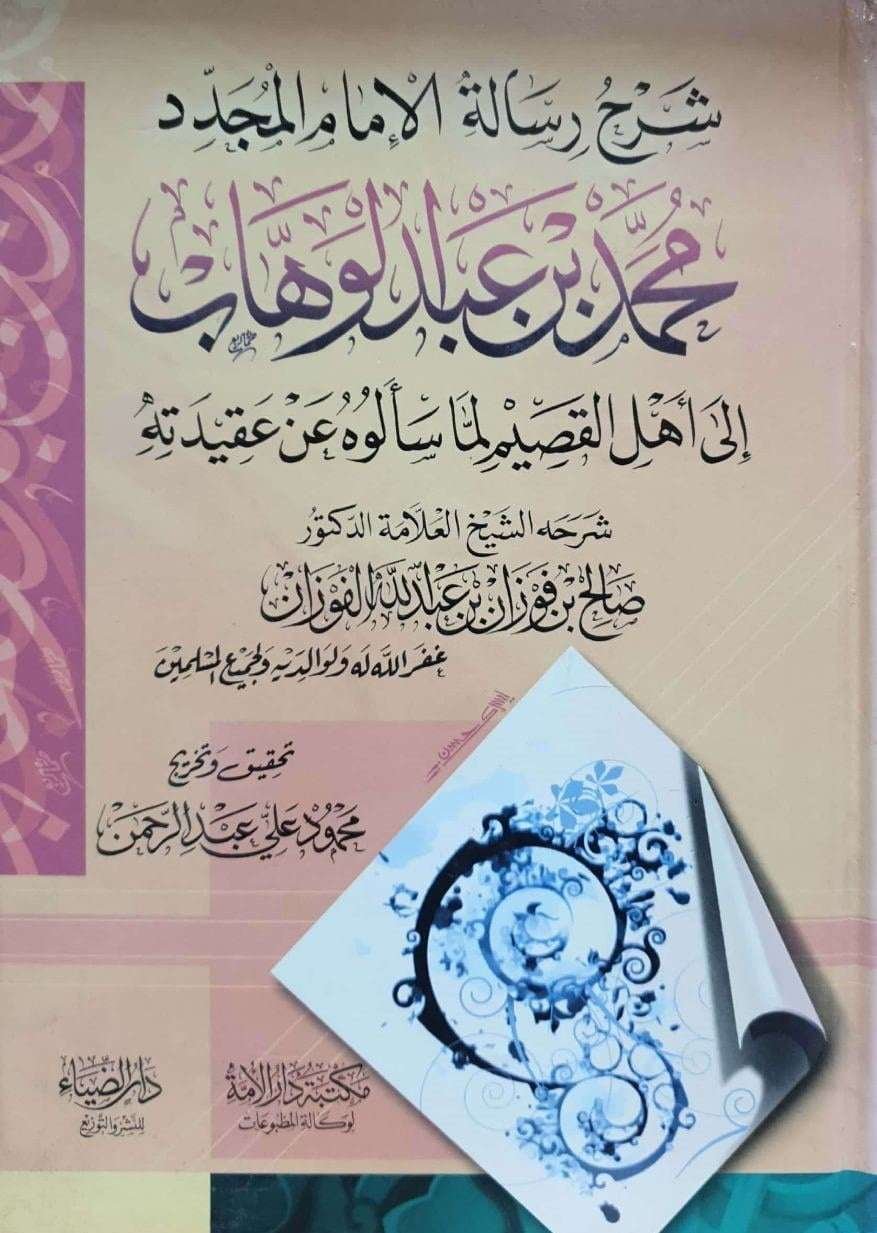 شَرْحُ رِسَالَةِ الإِمَامِ المُجَدِّد
مُحَمَّد بْن عَبْد الوَهَّاب
إِلَى أَهْلِ القَصِيْمِ لِمَّا سَأَلُوهُ عَنْ عَقِيْدَتِهِ
شَرَحَه الشَّيْخ العَلَّامَة الدكتُور
صَالِح بْن فَوْزَان بْن عَبْدِ اللَّه الفَوْزَان
غفَرَ اللَّه لَه وَلوَالِدَيْهِ وَلِجَمِيْعِ المُسْلِمِيْنَ
تحقِيق وَتخرِيج
مَحمُود عَلِي عَبْد الرَّحْمَن
مكتبة دَار الأمَّة
لوكالة المطبوعات
دَارُ الضِّيَاء
لِلنَّشْرِ وَالتَّوزِيْع